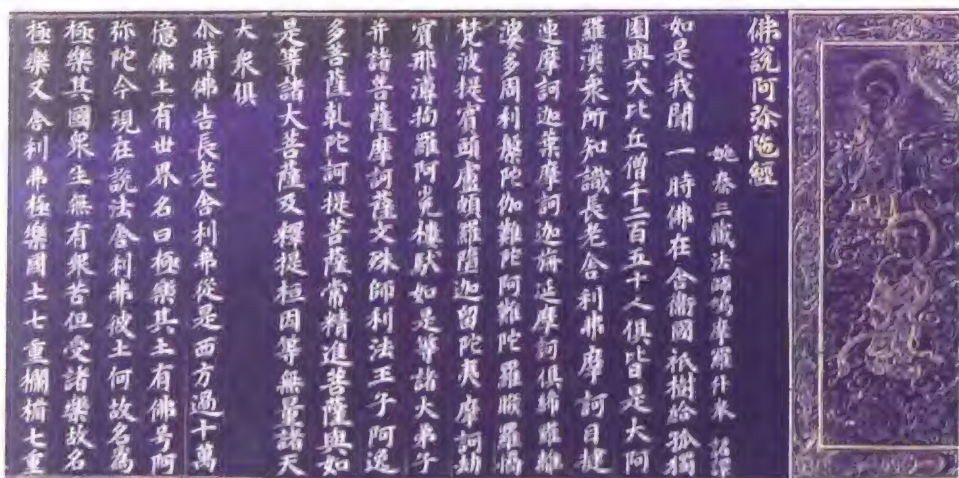 佛說阿弥陁經
姚秦三藏法師鳩摩羅什奉 詔譯
如是我聞一時佛在舍衛國祇樹給孤獨
園與大比丘僧千二百五十人俱皆是大阿
羅漢衆所知識長老舍利弗摩訶目揵
連摩訶迦葉摩訶迦旃延摩訶俱絺羅離
婆多周利槃陀伽難陀阿難陀羅睺羅憍
梵波提賓頭盧頗羅墮迦留陀夷摩訶劫
賓那薄拘羅阿㝹樓馱如是等諸大弟子
并諸菩薩摩訶薩文殊師利法王子阿逸
多菩薩乹陀訶提菩薩常精進菩薩與如
是等諸大菩薩及釋提桓因等無量諸天
大衆俱
尒時佛告長老舍利弗從是西方過十萬
億佛土有世界名曰極樂其土有佛号阿
弥陀今現在說法舍利弗彼土何故名爲
極樂其國衆生無有衆苦但受諸樂故名
極樂又舍利弗極樂國土七重欄楯七重